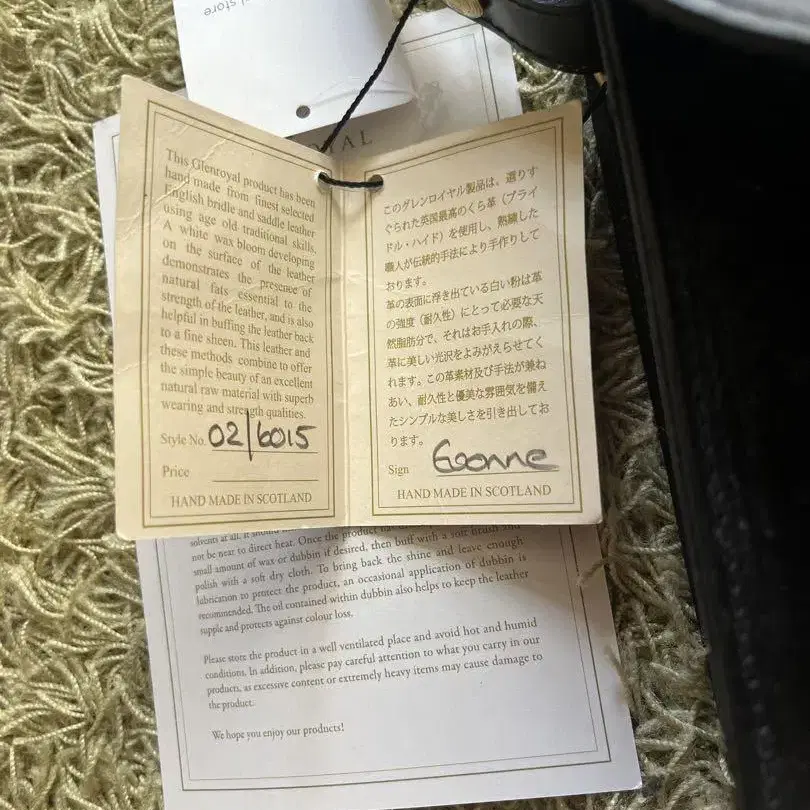 store
OYAL
This Glenroyal product has been
hand made from finest selected
English bridle and saddle leather
using age old traditional skills.
A white wax bloom developing
on the surface of the leather
demonstrates the presence of
natural fats essential to the
strength of the leather, and is also
helpful in buffing the leather back
to a fine sheen. This leather and
these methods combine to offer
the simple beauty of an excellent
natural raw material with superb
wearing and strength qualities.
Style No. 02/6015
Price
HAND MADE IN SCOTLAND
このグレンロイヤル製品は、選りす
ぐられた英国最高のくら革（ブライ
ドル・ハイド）を使用し、熟練した
職人が伝統的手法により手作りして
おります。
革の表面に浮き出ている白い粉は革
の強度（耐久性）にとって必要な天
然脂肪分で、それはお手入れの際、
革に美しい光沢をよみがえらせてく
れます。この革素材及び手法が兼ね
あい、耐久性と優美な雰囲気を備え
たシンプルな美しさを引き出してお
ります。
Sign Evonne
HAND MADE IN SCOTLAND
solvents at all. It should
not be near to direct heat. Once the product has
small amount of wax or dubbin if desired, then buff with a soft brush and
polish with a soft dry cloth. To bring back the shine and leave enough
lubrication to protect the product, an occasional application of dubbin is
recommended. The oil contained within dubbin also helps to keep the leather
supple and protects against colour loss.
Please store the product in a well ventilated place and avoid hot and humid
conditions. In addition, please pay careful attention to what you carry in our
products, as excessive content or extremely heavy items may cause damage to
the product.
We hope you enjoy our products!